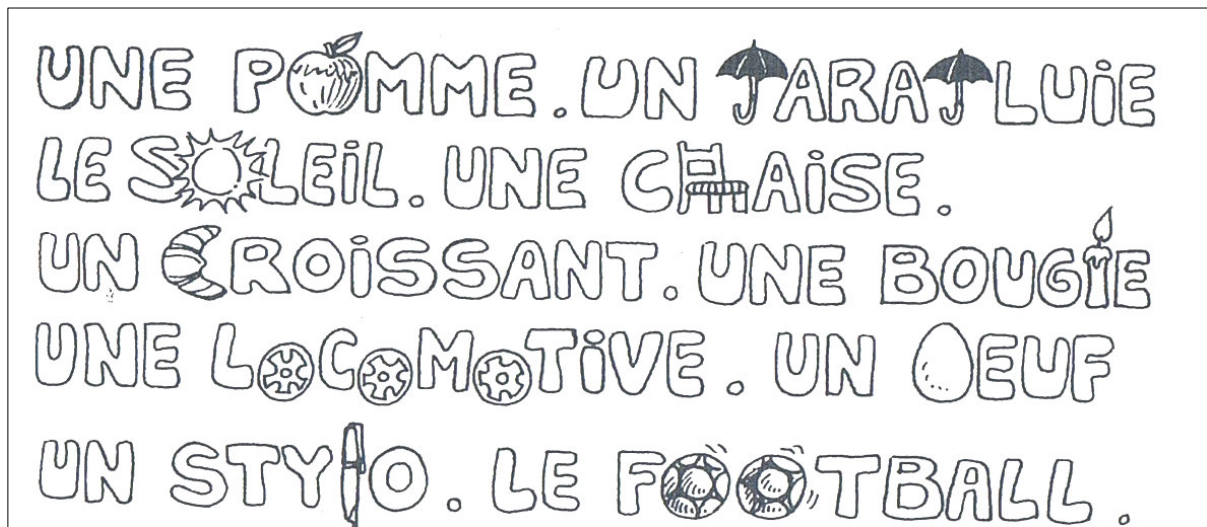 UNE POMME. UN PARAPLUiE
LE SOLEiL. UNE CHAiSE.
UN CROiSSANT. UNE BOUGiE
UNE LOCOMOTiVE. UN OEUF
UN STYLO. LE FOOTBALL.